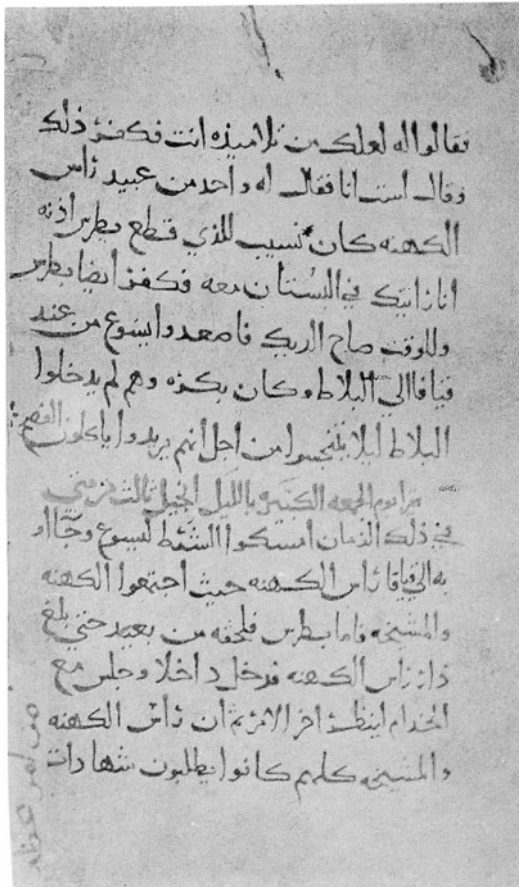 فقالوا له لعلك من تلاميذه انت فكفر ذلك
وقال لست انا فقال له واحد من عبيد راس
الكهنه كان نسيب للذي قطع بطرس اذنه
انا رايتك في البستان معه فكفر ايضا بطرس
وللوقت صاح الديك فاصعدوا ايسوع من عند
قيافا الي البلاط وكان بكره وهم لم يدخلوا
البلاط ليلا يتنجسوا من اجل انهم يريدوا ياكلون الفصح
يوم الجمعه الكبيره بالليل انجيل ثالث من متي
في ذلك الزمان امسكوا الشرط ليسوع وجااو
به الي قيافا راس الكهنه حيث اجتمعوا الكهنه
والمشيخه فاما بطرس فلحقه من بعيد حتي بلغ
دار راس الكهنه فدخل داخلا وجلس مع
الخدام لينظر اخر الامر ثم ان راس الكهنه
والمشيخه كلهم كانوا يطلبون شهادات